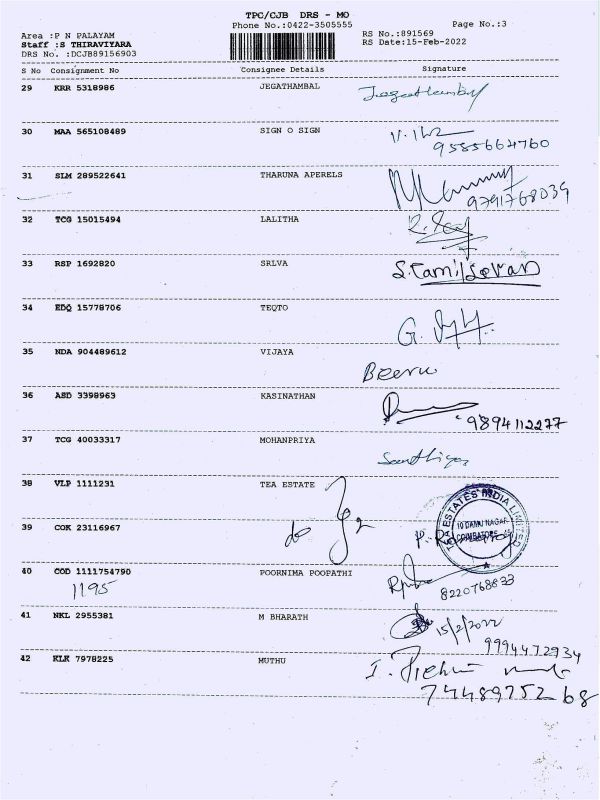 TPC/CJB DRS - MO
Phone No.:0422-3505555
Page No.:3
Area :P N PALAYAM
RS No.:891569
Staff :S THIRAVIYARA
RS Date:15-Feb-2022
DRS No. :DCJB89156903
S No Consignment No Consignee Details Signature
29 KRR 5318986 JEGATHAMBAL Jegathambal
30 MAA 565108489 SIGN O SIGN
9585664760
31 SLM 289522641 THARUNA APERELS
9791768039
32 TCG 15015494 LALITHA
33 RSP 1692820 SRLVA S.Tamilselvan
34 EDQ 15778706 TEQTO
35 NDA 904489612 VIJAYA
36 ASD 3398963 KASINATHAN
9894112277
37 TCG 40033317 MOHANPRIYA
38 VLP 1111231 TEA ESTATE
TEA ESTATES INDIA LIMITED
COIMBATORE
39 COK 23116967 do
40 COD 1111754790 POORNIMA POOPATHI
1195
8220768833
41 NKL 2955381 M BHARATH 15/2/2022
9994472934
42 KLK 7978225 MUTHU
7448975268